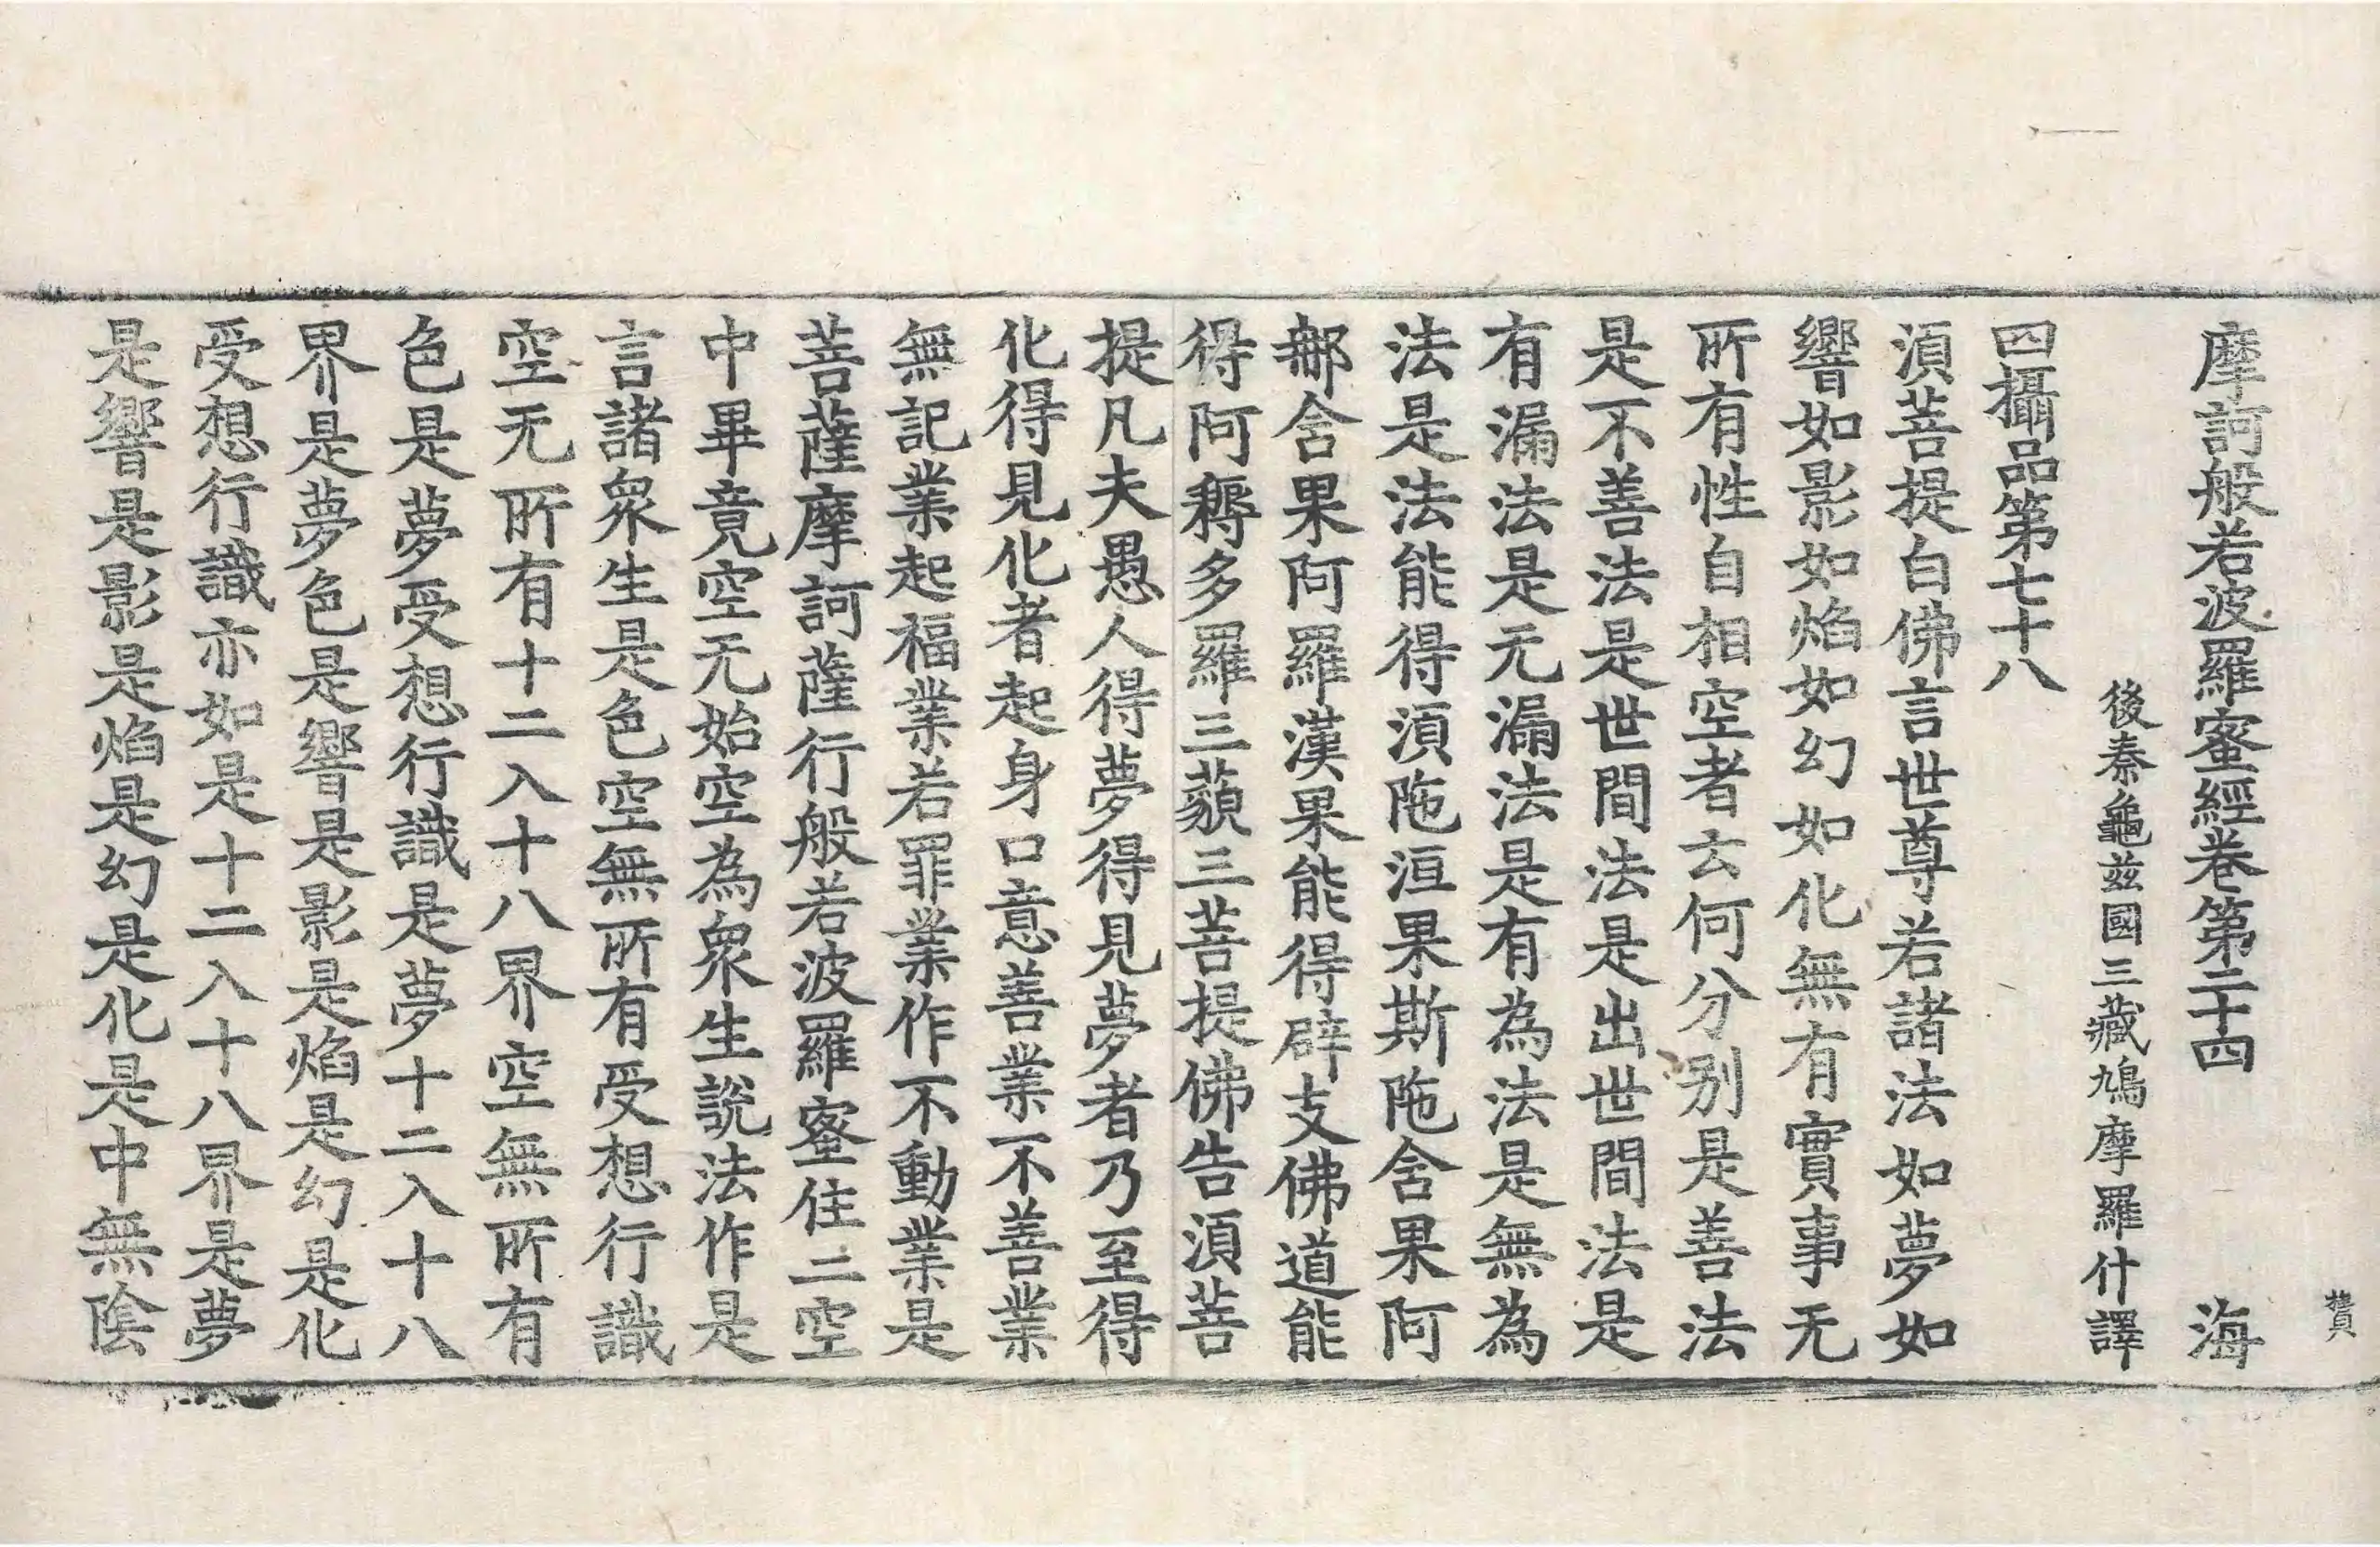 賛
摩訶般若波羅蜜經卷第二十四 海
後秦龜茲國三藏鳩摩羅什譯
四攝品第七十八
湏菩提白佛言世尊若諸法如夢如
響如影如焰如幻如化無有實事无
所有性自相空者云何分别是善法
是不善法是世間法是出世間法是
有漏法是无漏法是有為法是無為
法是法能得湏陁洹果斯陁舍果阿
郍舍果阿羅漢果能得辟支佛道能
得阿耨多羅三藐三菩提佛告湏菩
提凡夫愚人得夢得見夢者乃至得
化得見化者起身口意善業不善業
無記業起福業若罪業作不動業是
菩薩摩訶薩行般若波羅蜜住二空
中畢竟空无始空為衆生說法作是
言諸衆生是色空無所有受想行識
空无所有十二入十八界空無所有
色是夢受想行識是夢十二入十八
界是夢色是響是影是焰是幻是化
受想行識亦如是十二入十八界是夢
是響是影是焰是幻是化是中無陰